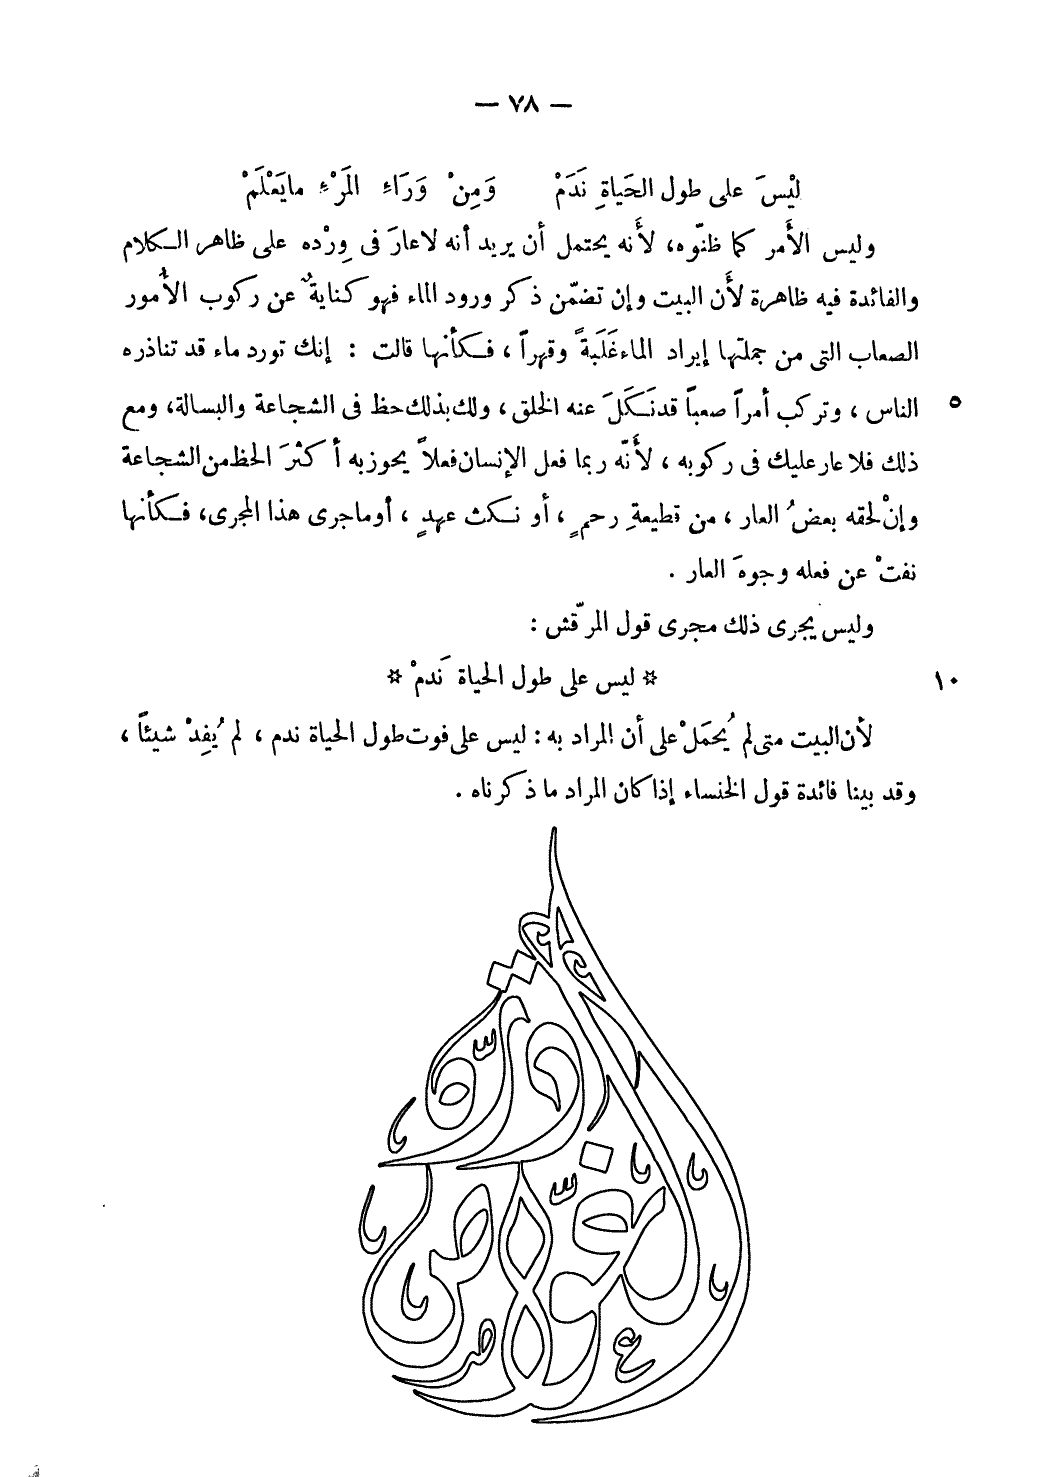 — ٧٨ —
لَيْسَ على طول الحَياةِ نَدَمْ وَمِنْ وَرَاءِ المَرْءِ مايَعْلَمْ
وليس الأَمر كما ظنّوه، لأَنه يحتمل أن يريد أنه لاعارَ فى وِرْده على ظاهر الكلام
والفائدة فيه ظاهرة لأَن البيت وإن تضمّن ذكر ورود الماء فهو كنايةٌ عن ركوب الأُمور
الصعاب التى من جملتها إيراد الماء غَلَبةً وقهراً ، فكأنها قالت : إنك تورد ماء قد تناذره
٥ الناس ، وتركب أمراً صعباً قد نَكَلَ عنه الخلق ، ولك بذلك حظ فى الشجاعة والبسالة، ومع
ذلك فلا عار عليك فى ركوبه ، لأَنّه ربما فعل الإنسان فعلاً يحوز به أكثرَ الحظ من الشجاعة
وإنْ لحقه بعضُ العار ، من قطيعةِ رحمٍ ، أو نكث عهدٍ ، أو ماجرى هذا المجرى، فكأنها
نفتْ عن فعله وجوهَ العار .
وليس يجرى ذلك مجرى قول المرقّش :
١٠ * ليس على طول الحياة نَدمْ *
لأن البيت متى لم يُحمَلْ على أن المراد به : ليس على فوت طول الحياة ندم ، لم يُفِدْ شيئاً ،
وقد بينا فائدة قول الخنساء إذا كان المراد ما ذكرناه .
درّة الغوّاص